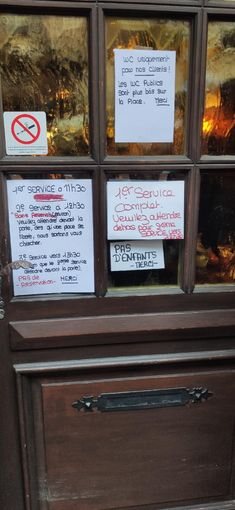 WC Uniquement
pour nos clients !
les WC Publics
Sont plus bas sur
la Place.
MERCI
1er SERVICE à 11h30
Sans Réservation
2e SERVICE à 12h30
Veuillez attendre devant la
porte, dès qu'une place se
libère, nous sortons vous
chercher.
attendre devant la porte.
PAS de
Réservation
MERCI
1er Service
Complet.
Veuillez attendre
dehors pour le
SERVICE
PAS
D'ENFANTS
- MERCI -